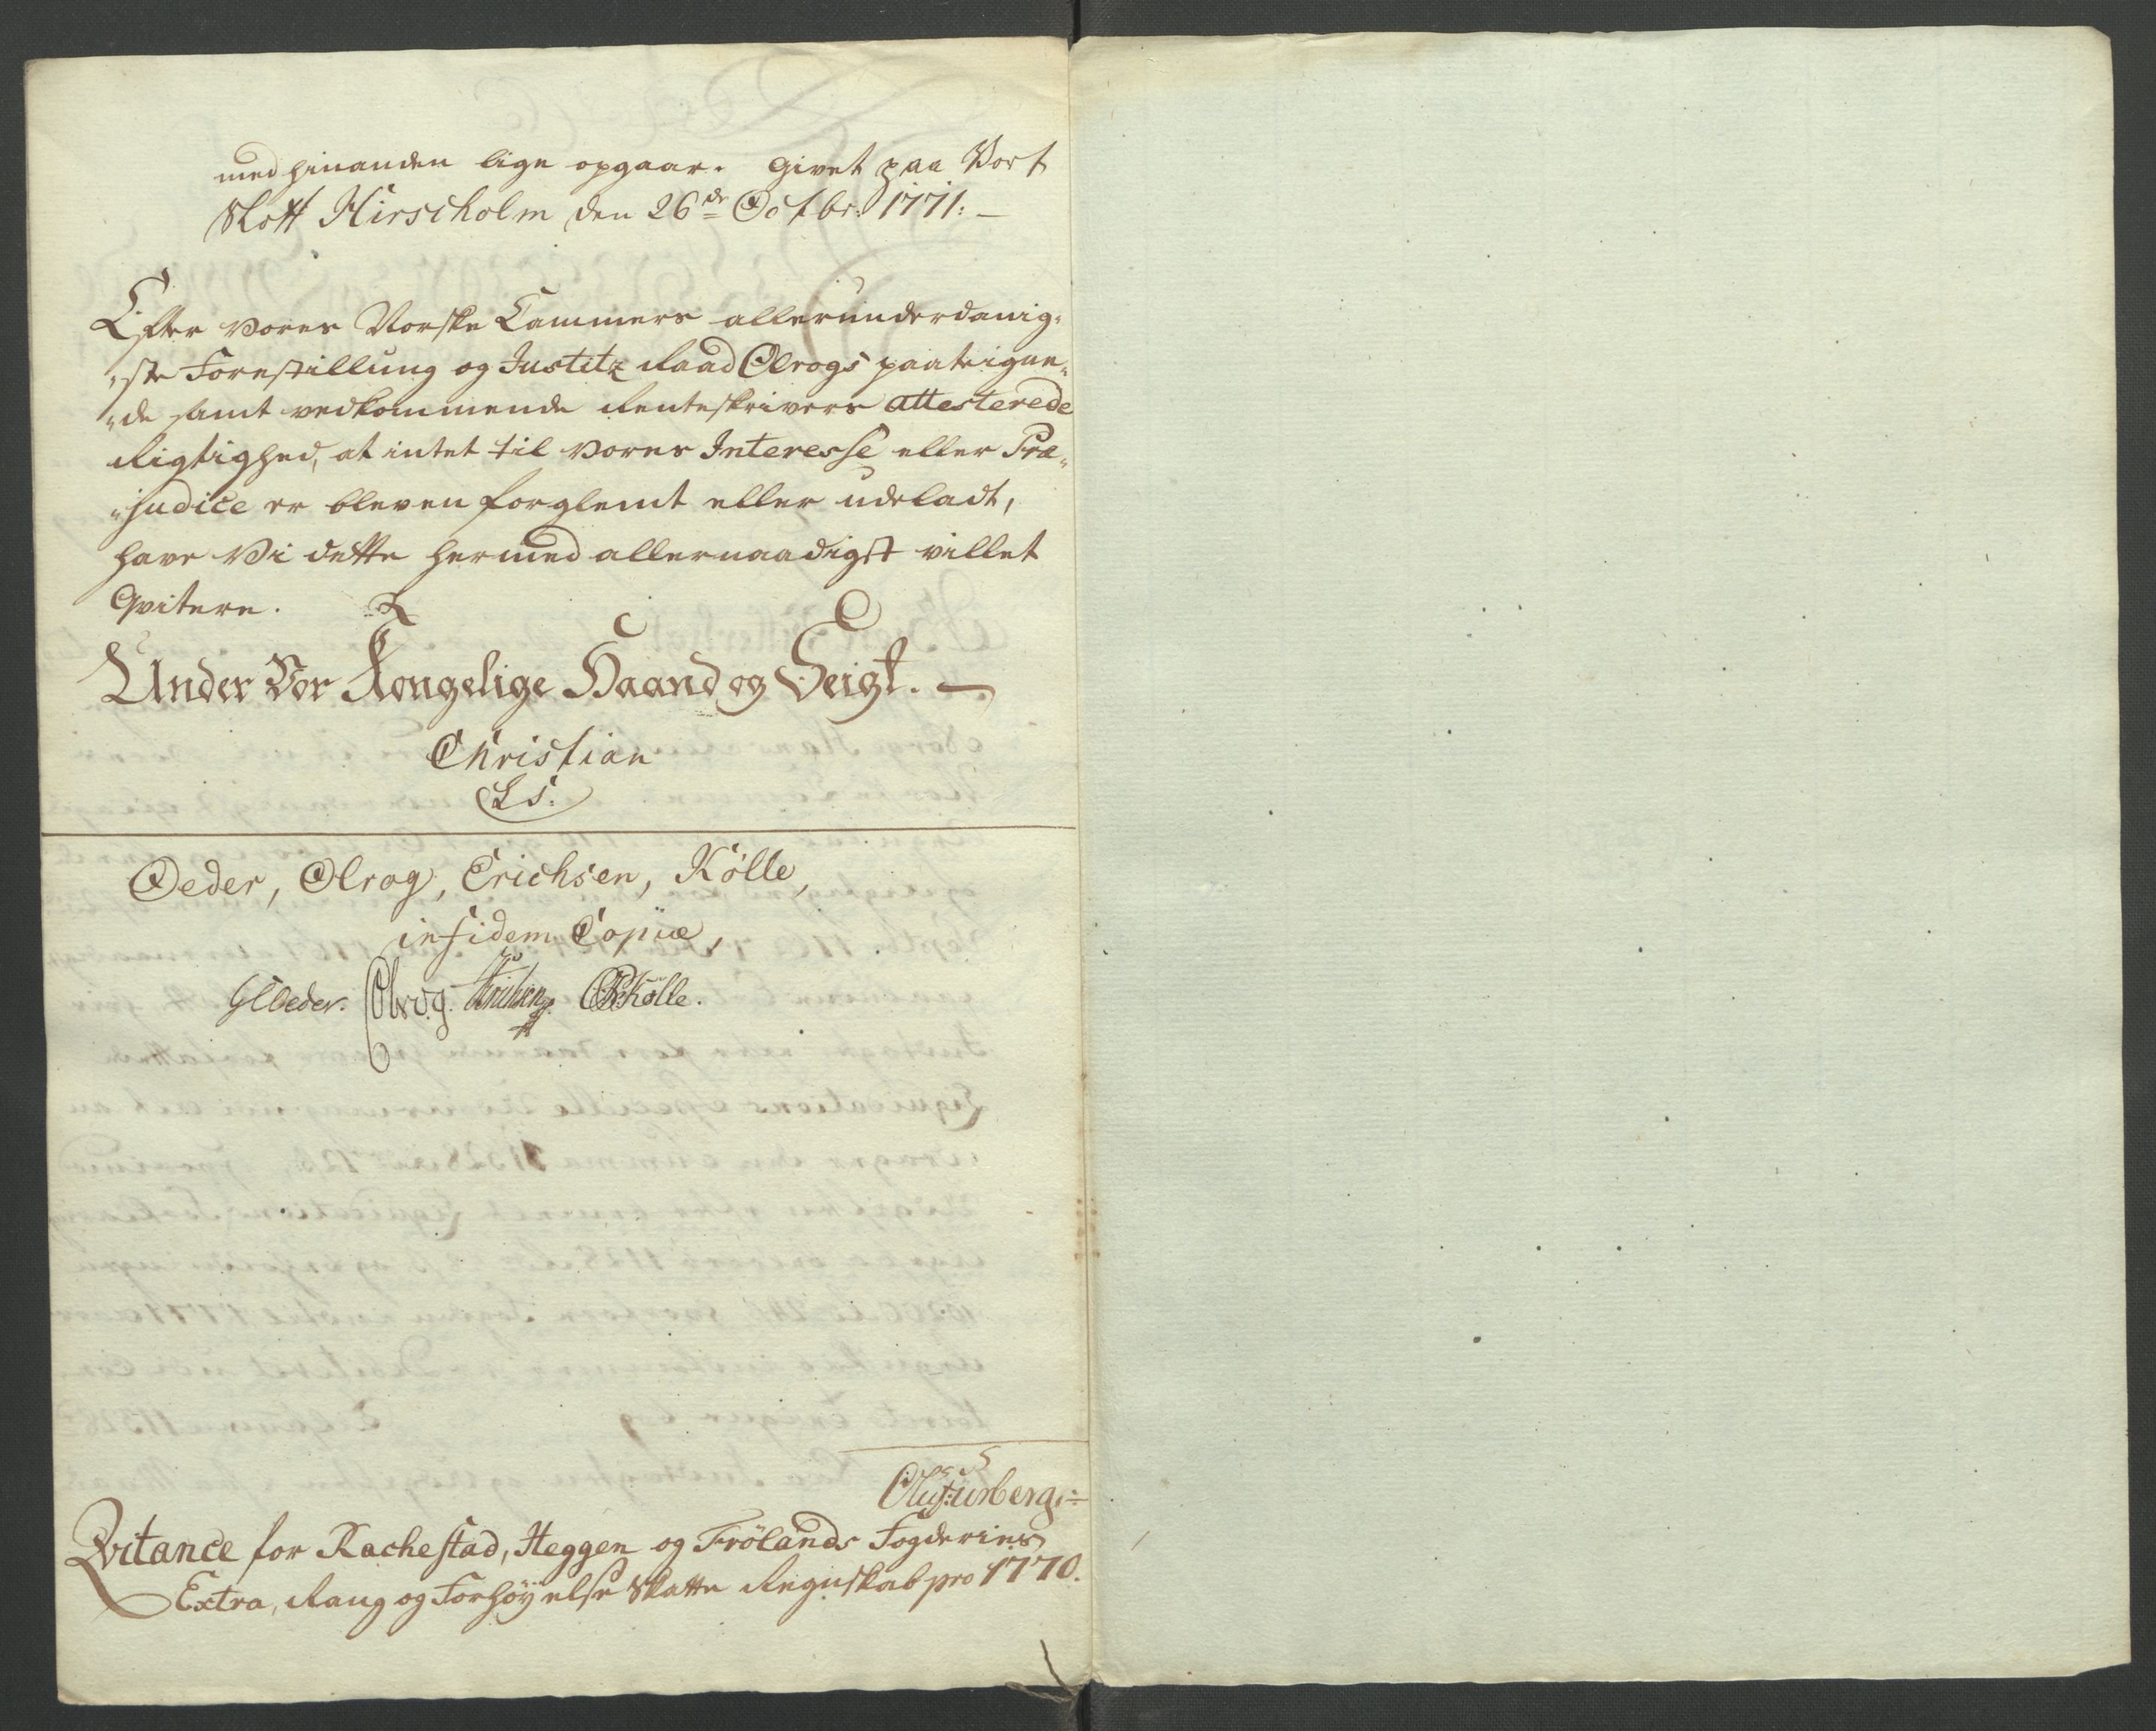 med hinanden lige opgaar. Givet paa Vort
Slott Hirscholm den 26de Octbr: 1771:
Efter Vores Norske Cammers allerunderdanig-
ste Forestillung og Justitz Raad Olrogs paateigne-
de samt vedkommende Renteskrivers attesterede
Rigtighed, at intet til Vores Interesse eller Præ-
judice er bleven forglemt eller udeladt,
have Vi dette hermed allernaadigst villet
Qvitere.
Under Vor Kongelige Haand og Seigl.
Christian
LS.
Oeder, Olrog, Erichsen, Kölle,
in fidem Copiæ,
GCOeder. Olrog. Erichsen. Kölle.
Qvitance for Rachestad, Heggen og Frölands Fogderies
Extra, Rang og Forhöyelse Skatte Regnskab pro 1770.